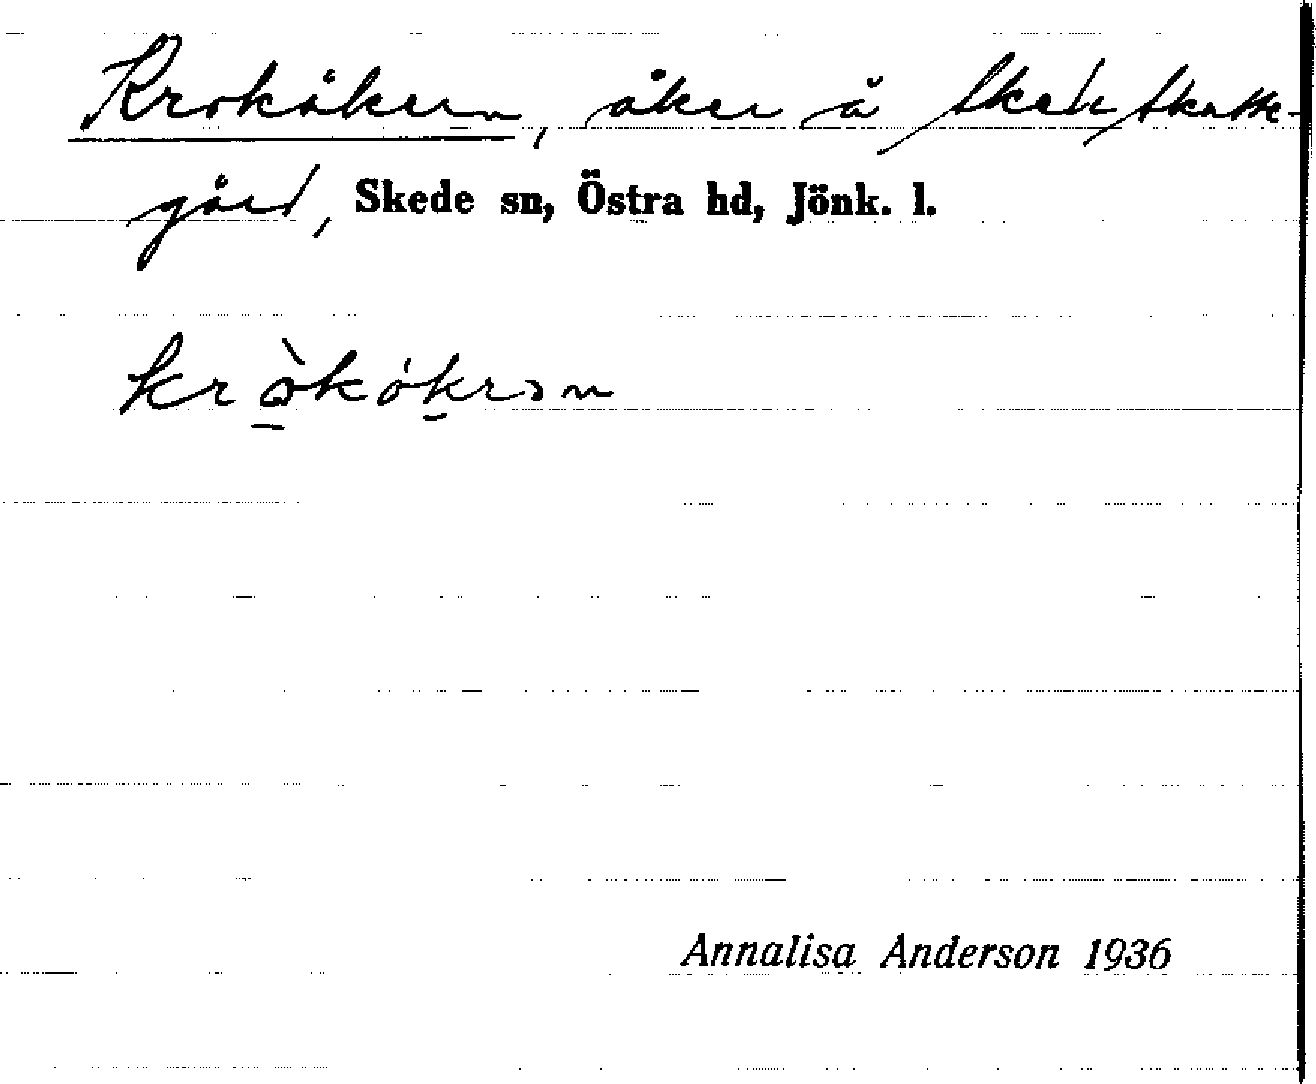 Krokåkern, åker å Skede Skatte-
gård, Skede sn, Östra hd, Jönk. l.
Annalisa Anderson 1936